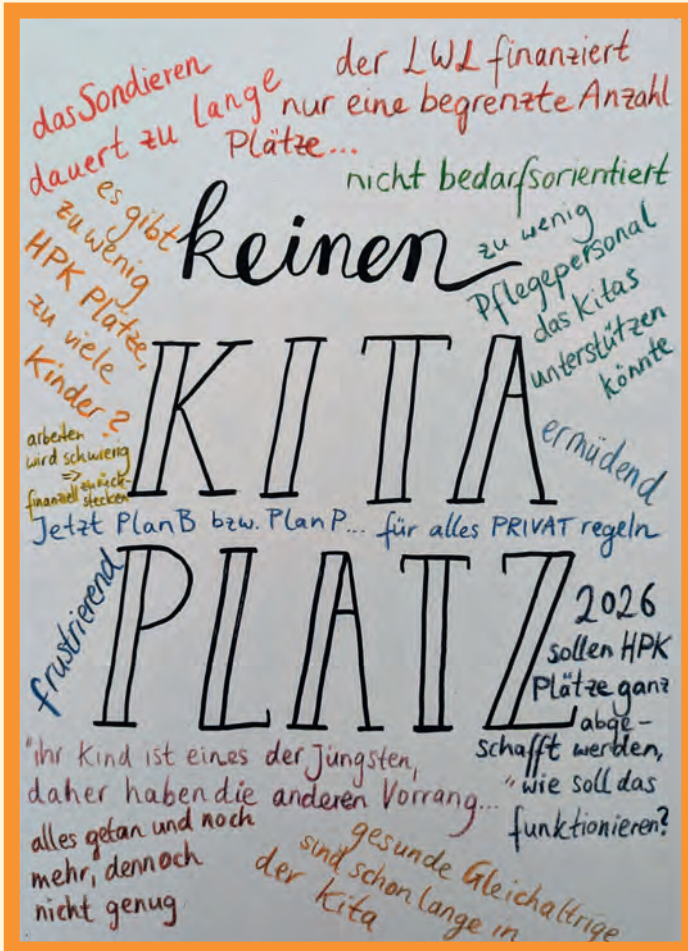 das Sondieren
dauert zu lange
der LWL finanziert
nur eine begrenzte Anzahl
Plätze...
nicht bedarfsorientiert
es gibt
zu wenig
HPK Plätze,
zu viele
Kinder?
keinen
zu wenig
Pflegepersonal
das Kitas
unterstützen
könnte
KITA
arbeiten
wird schwierig
=> zurück-
finanziell stecken
ermüdend
Jetzt Plan B bzw. Plan P... für alles PRIVAT regeln
frustrierend
PLATZ
2026
sollen HPK
Plätze ganz
abge-
schafft werden,
wie soll das
funktionieren?
"ihr Kind ist eines der Jüngsten,
daher haben die anderen Vorrang..."
alles getan und noch
mehr, dennoch
nicht genug
gesunde Gleichaltrige
sind schon lange in
der Kita